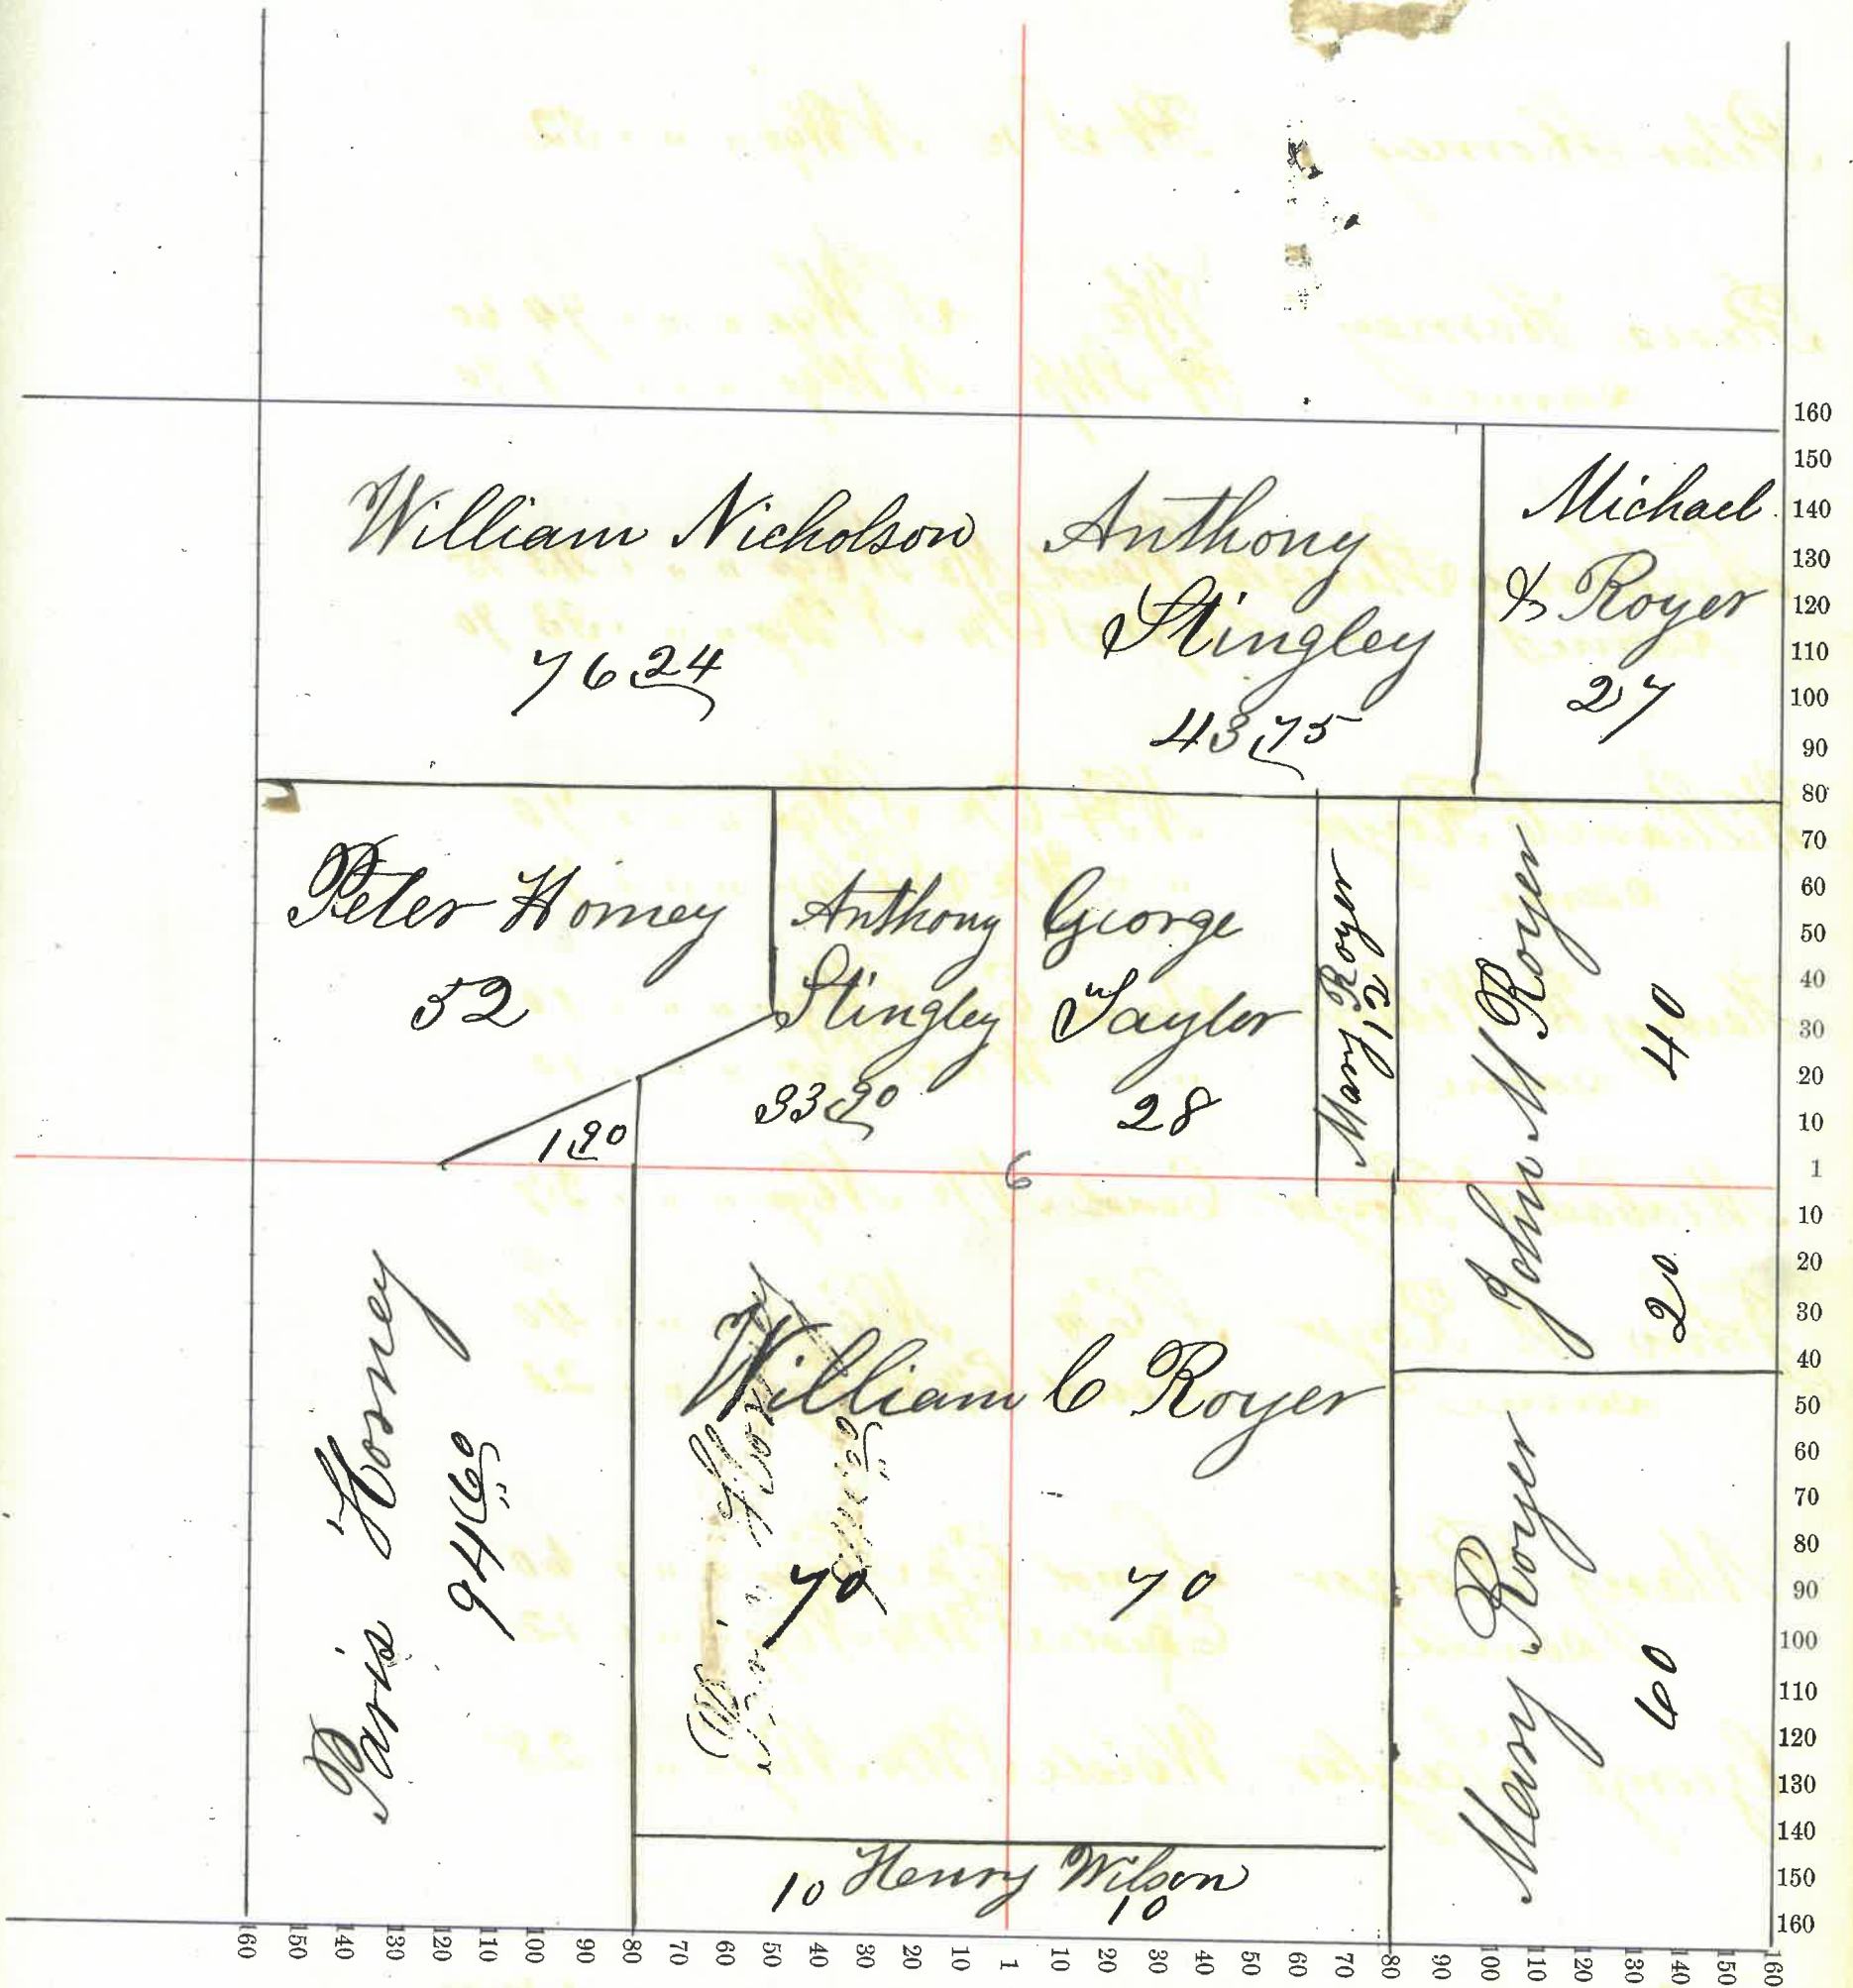 William Nicholson
76 24
Anthony
Stingley
43 75
Michael
& Royer
27
Peter Horney
52
1 90
Anthony
Stingley
33 90
George
Taylor
28
Mary Royer
12
John M Royer
40
20
6
Paris Horney
94 60
William C Royer
70
70
Mary Royer
60
10 Henry Wilson
10
160
150
140
130
120
110
100
90
80
70
60
50
40
30
20
10
1
10
20
30
40
50
60
70
80
90
100
110
120
130
140
150
160
160
150
140
130
120
110
100
90
80
70
60
50
40
30
20
10
1
10
20
30
40
50
60
70
80
90
100
110
120
130
140
150
160